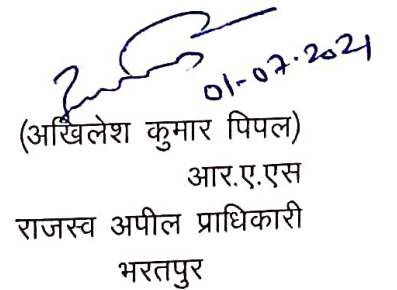 01-07-2021
(अखिलेश कुमार पिपल)
आर.ए.एस
राजस्व अपील प्राधिकारी
भरतपुर